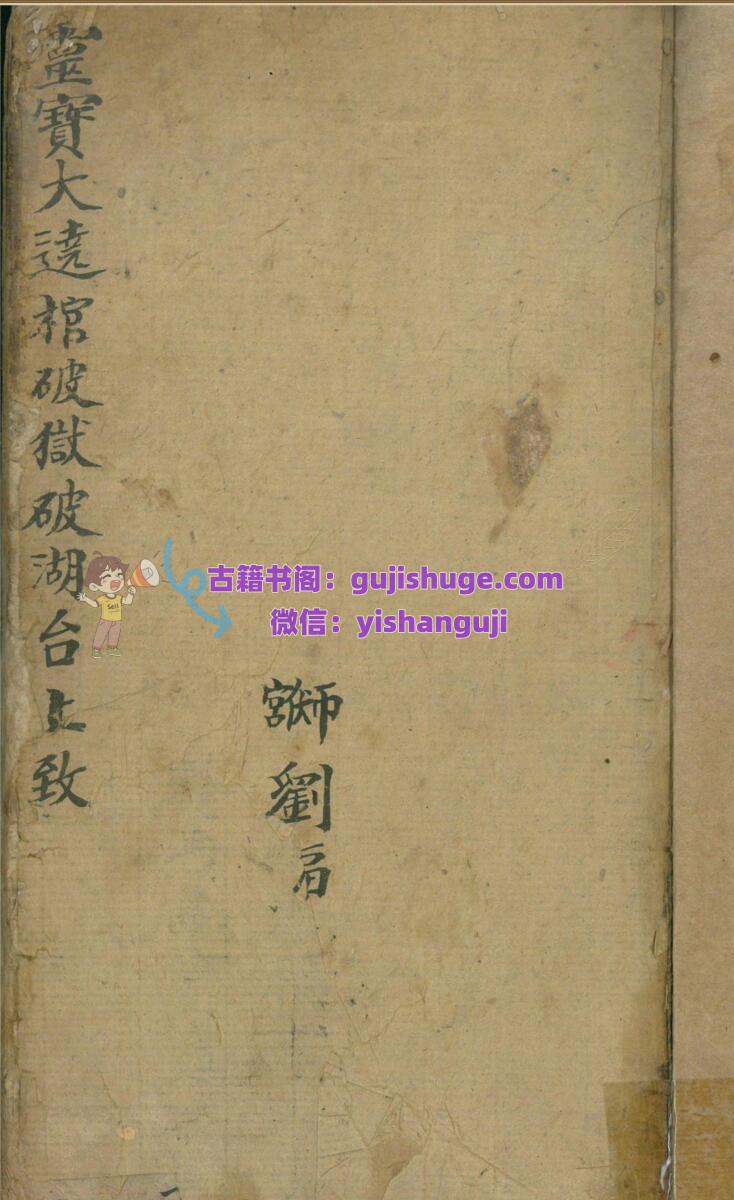 靈寶大遶棺破獄破湖台上致
劉
古籍书阁：gujishuge.com
微信：yishanguji
Sell